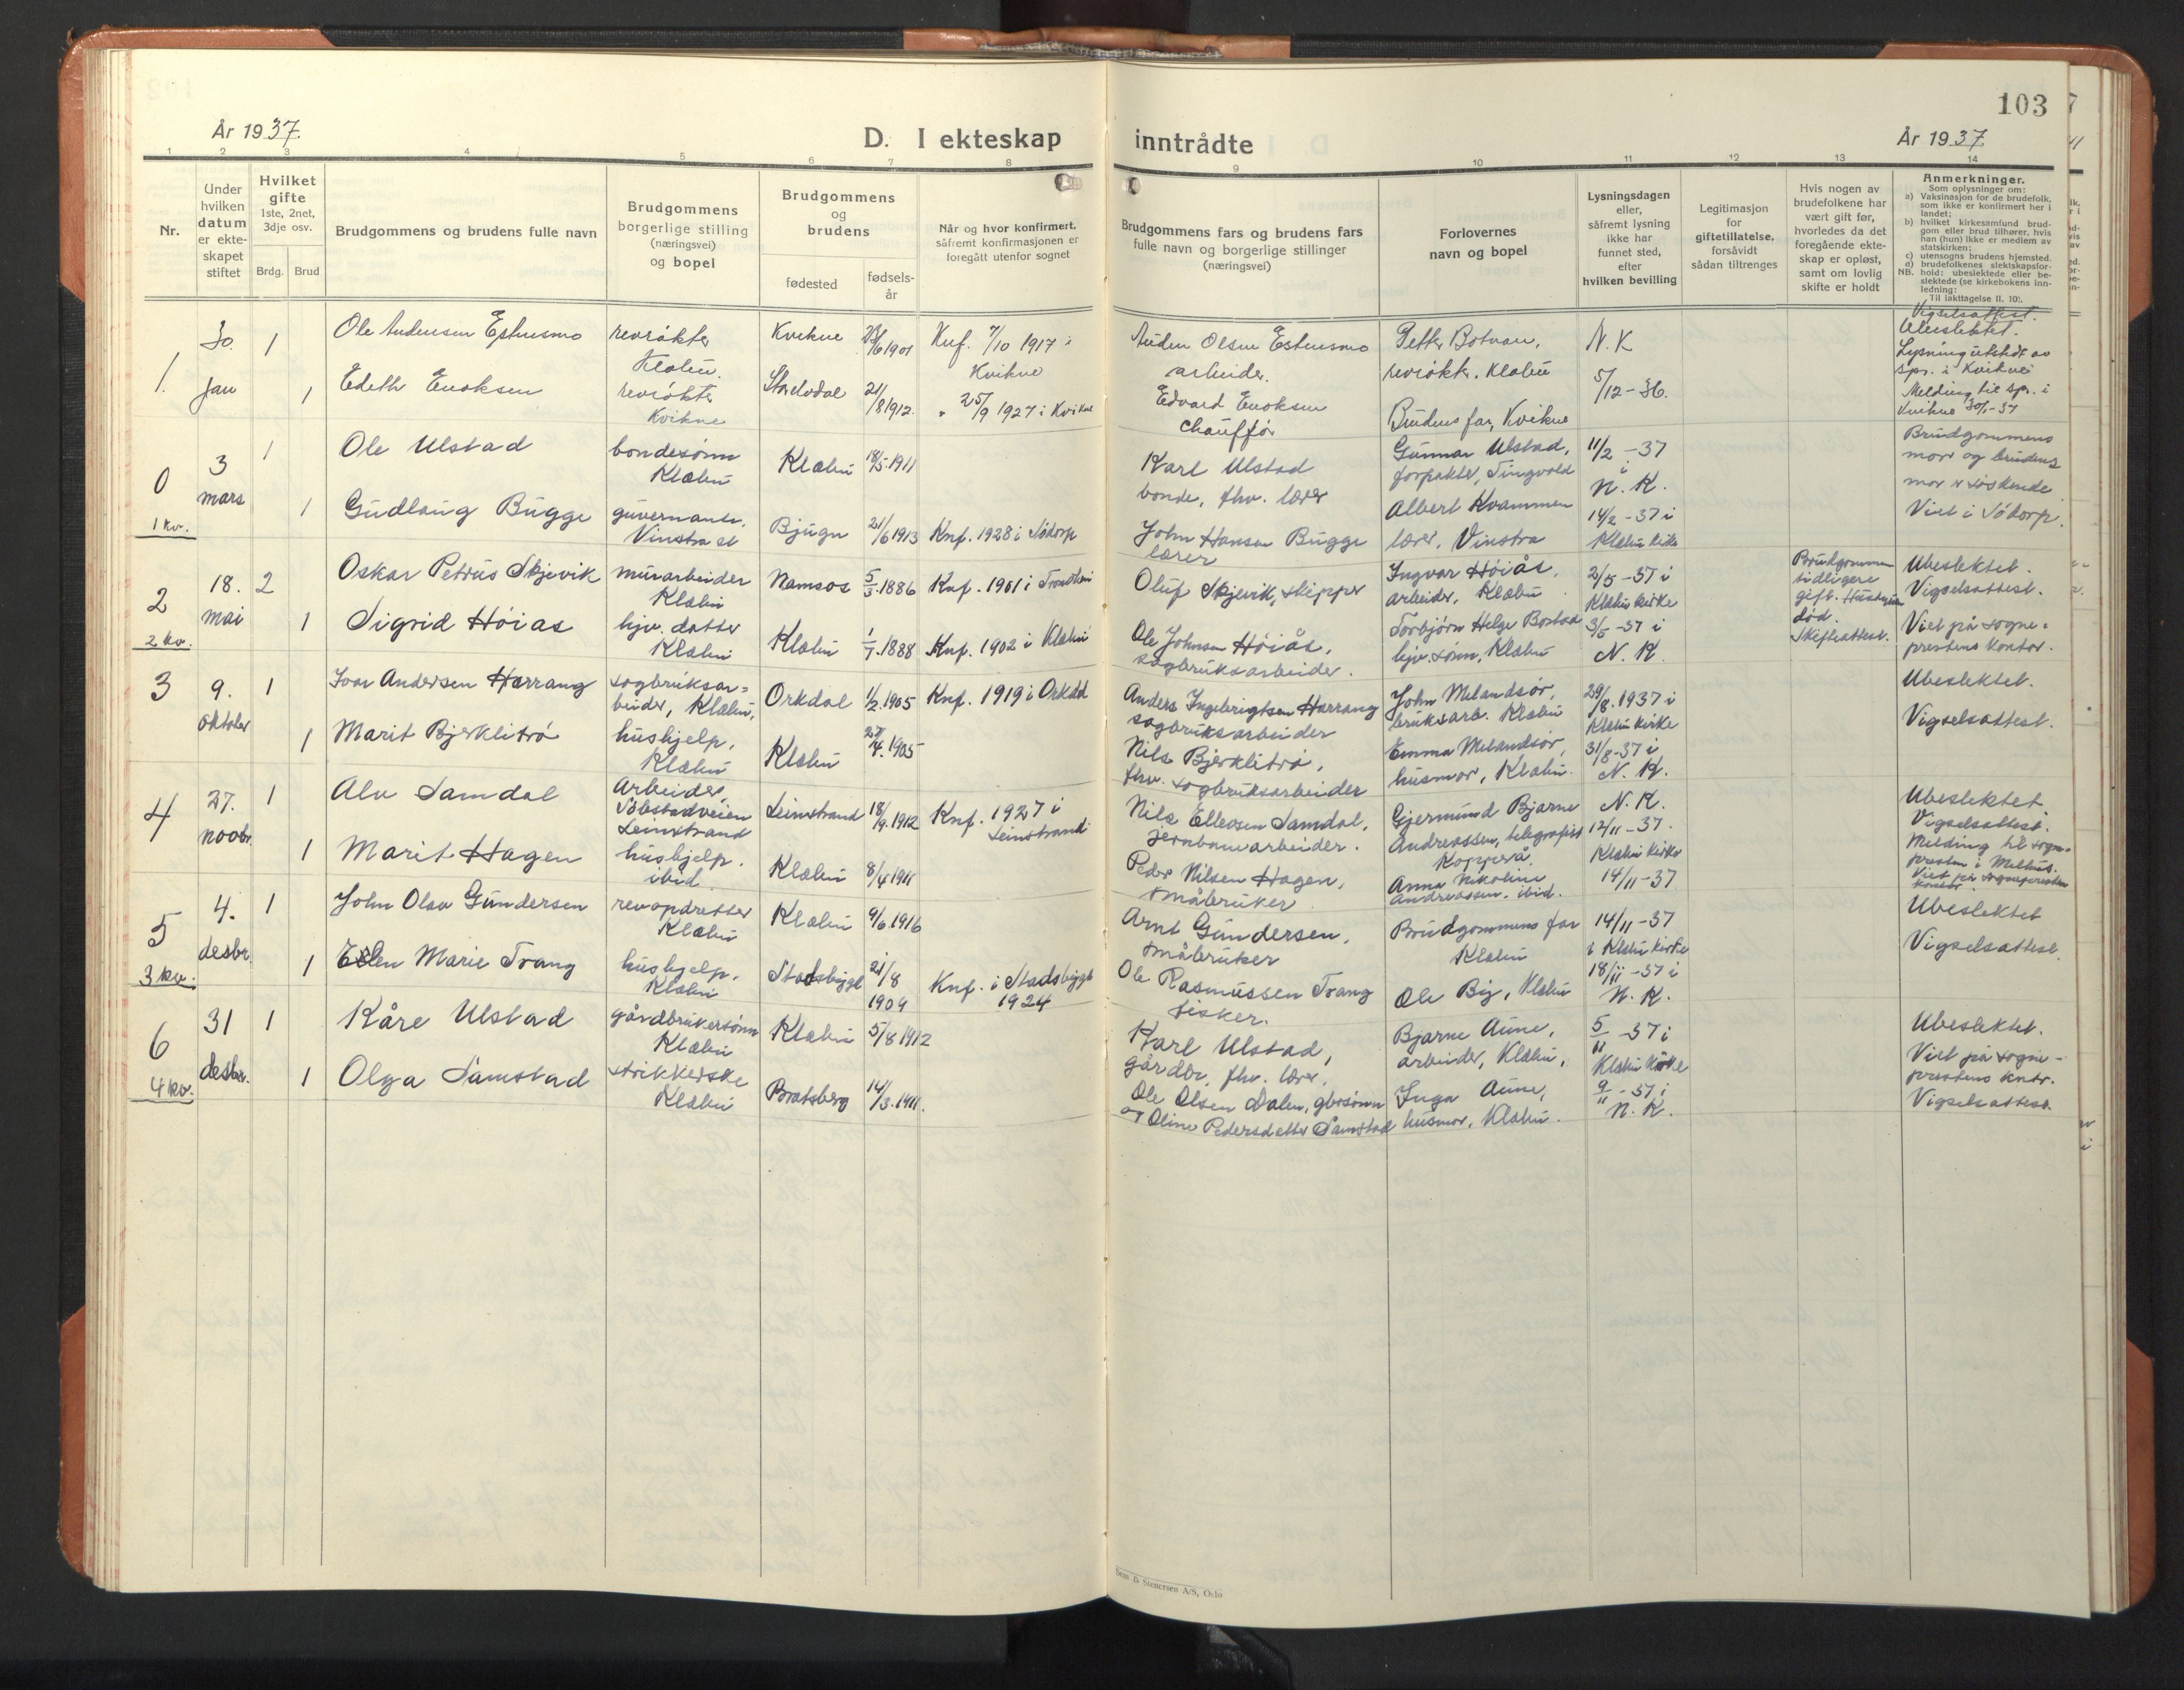 103
År 1937
D. I ekteskap
inntrådte
År 1937
1 2 3 4 5 6 7 8 9 10 11 12 13 14
Nr.
Under
hvilken
datum
er ekte-
skapet
stiftet
Hvilket
gifte
1ste, 2net,
3dje osv.
Brdg.
Brud
Brudgommens og brudens fulle navn
Brudgommens
borgerlige stilling
(næringsvei)
og bopel
Brudgommens
og
brudens
fødested
fødsels-
år
Når og hvor konfirmert,
såfremt konfirmasjonen er
foregått utenfor sognet
Brudgommens fars og brudens fars
fulle navn og borgerlige stillinger
(næringsvei)
Forlovernes
navn og bopel
Lysningsdagen
eller,
såfremt lysning
ikke har
funnet sted,
efter
hvilken bevilling
Legitimasjon
for
giftetillatelse,
forsåvidt
sådan tiltrenges
Hvis nogen av
brudefolkene har
vært gift før,
hvorledes da det
foregående ekte-
skap er opløst,
samt om lovlig
skifte er holdt
Anmerkninger.
Som oplysninger om:
a) Vaksinasjon for de brudefolk,
som ikke er konfirmert her i
landet;
b) hvilket kirkesamfund brud-
gom eller brud tilhører, hvis
han (hun) ikke er medlem av
statskirken;
c) utensogns brudens hjemsted.
d) brudefolkenes slektskapsfor-
NB. hold: ubeslektede eller be-
slektede (se kirkebokens inn-
ledning:
Til iakttagelse II. 10).
1.
30.
Jan
1
Ole Audensen Estensmo
revrøkter
Klæbu.
Kvikne
6 1901
Knf. 7/10 1917 i
Kvikne
Auden Olsen Estensmo
arbeider.
Petter Botvan,
revrøkt. Klæbu
N. K
5/12-36.
Vigselsattest.
Ubeslektet.
Lysning utstedt av
spr. i Kvikne
Meldning til spr. i
Kvikne 30/1-37
1
Edith Enoksen
revrøkter
Kvikne
21/8 1912.
" 25/9 1927 i Kvikne
Edvard Enoksen
chauffør
Brudens far, Kvikne
0
1 kv.
3
mars
1
Ole Ulstad
bondesønn
Klæbu
Klæbu
18/5.1911
Karl Ulstad
bonde, fhv. lærer
Gunnar Ulstad,
forpakter, Tingvold
11/2-37
i
N. K.
Brudgommens
mor og brudens
mor er søskende
Viet i Sødorp.
1
Gudlaug Bugge
guvernante,
Vinstra st
Bjugn
21/6 1913
Knf. 1928 i Sødorp
John Hansen Bugge
lærer
Albert Kvammen
lærer, Vinstra
14/2-37 i
Klæbu kirke
2
2 kv.
18.
mai
2
Oskar Petrus Skjevik
murarbeider
Klæbu
Namsos
5/3.1886
Knf. 1901 i Trondheim
Oluf Skjevik, skipper
Ingvar Høiås,
arbeider, Klæbu
2/5-37 i
Klæbu kirke
Brudgommen
tidligere
gift. Hustruen
død.
Skifteattest.
Ubeslektet.
Vigselsattest.
Viet på sogne-
prestens kontor.
1
Sigrid Høiås
hjv. datter
Klæbu
Klæbu
1/7.1888
Knf. 1902 i Klæbu
Ole Johnsen Høiås,
sagbruksarbeider.
Torbjørn Helge Bostad
hjv. sønn, Klæbu
3/5-37 i
N. K.
3
9.
oktober
1
Ivar Andersen Harrang
sagbruksar-
beider, Klæbu,
Orkdal
1/2.1905
Knf. 1919 i Orkdal
Anders Ingebrigtsen Harrang
sagbruksarbeider
John Melandsør,
bruksarb. Klæbu
29/8.1937 i
Klæbu kirke
Ubeslektet.
Vigselsattest.
1
Marit Bjerklitrø
hushjelp,
Klæbu
Klæbu
27/4.1905
Nils Bjerklitrø,
fhv. sagbruksarbeider
Emma Melandsør,
husmor, Klæbu.
31/8-37 i
N. K.
4
27.
novbr.
1
Alv Samdal
Arbeider,
Søbstadveien
Leinstrand
Leinstrand
18/9.1912
Knf. 1927 i
Leinstrand
Nils Ellevsen Samdal,
jernbanearbeider.
Gjermund Bjarne
Andreassen, telegrafist
Kopperå
N. K.
12/11-37.
Ubeslektet.
Vigselsattest.
Melding til sogne-
presten i Melhus.
Viet på sogneprestens
kontor
1
Marit Hagen
hushjelp.
ibid.
Klæbu
8/4 1911
Peder Nilsen Hagen,
småbruker.
Anna Nikoline
Andreassen, ibid.
Klæbu kirke
14/11-37
5
3 kv.
4.
desbr.
1
John Olav Gundersen
revopdretter
Klæbu
Klæbu
9/6 1916
Arnt Gundersen,
småbruker
Brudgommens far
Klæbu
14/11-37
i Klæbu kirke
Ubeslektet
Vigselsattest.
1
Ellen Marie Trang
hushjelp,
Klæbu
Stadsbygd
21/8
1909
Knf. i Stadsbygd
1924
Ole Rasmussen Trang
fisker.
Ole Big, Klæbu
18/11-37 i
N. K.
6
4 kv.
31
desbr.
1
Kåre Ulstad
gårdbrukersønn
Klæbu
Klæbu
5/8 1912
Karl Ulstad,
gårdbr, fhv. lærer.
Bjarne Aune,
arbeider, Klæbu,
5/11-37 i
Klæbu kirke
Ubeslektet.
Viet på sogne-
prestens kntr.
Vigselsattest.
1
Olga Samstad
strikkerske
Klæbu
Bratsberg
14/3.1911.
Ole Olsen Dalen, gbrsønn
og Oline Pedersdatter Samstad
Inga Aune,
husmor, Klæbu.
9/11-37 i
N. K.
Sem & Stenersen A/S, Oslo